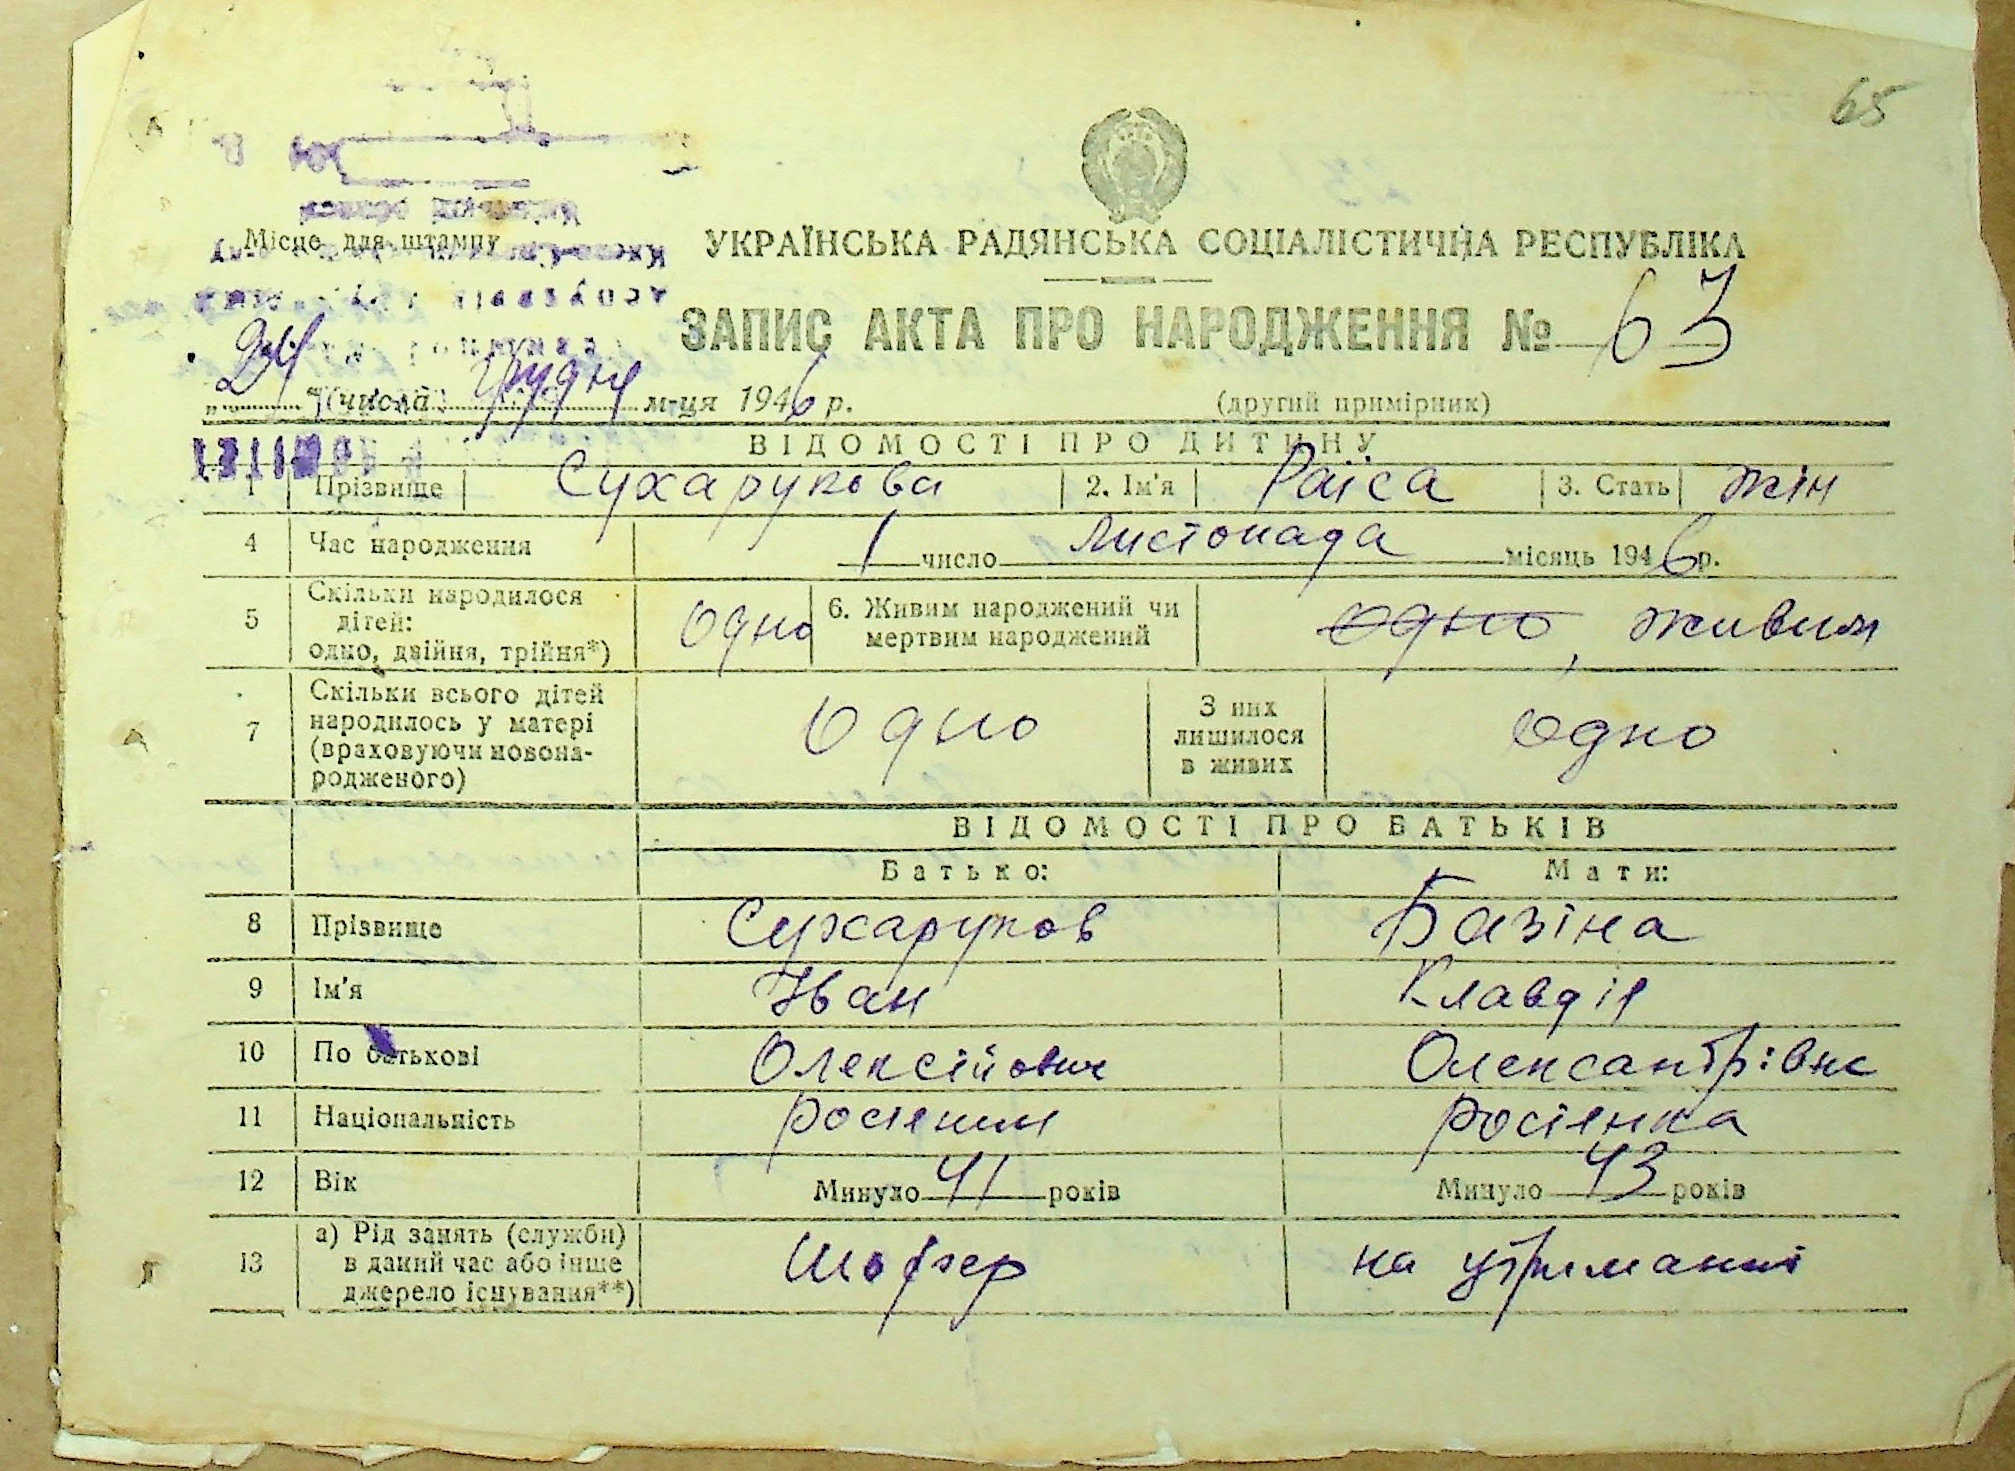 65
Місце для штампу
УКРАЇНСЬКА РАДЯНСЬКА СОЦІАЛІСТИЧНА РЕСПУБЛІКА
ЗАПИС АКТА ПРО НАРОДЖЕННЯ № 63
„ 24 “ (числа) Грудня м-ця 1946 р.
(другий примірник)
ВІДОМОСТІ ПРО ДИТИНУ
1 Прізвище Сухарукова 2. Ім'я Раїса 3. Стать жін
4 Час народження 1 число Листопада місяць 1946 р.
5 Скільки народилося дітей: одно, двійня, трійня*) Одно 6. Живим народжений чи мертвим народжений одно, живим
7 Скільки всього дітей народилось у матері (враховуючи новонародженого) Одно З них лишилося в живих Одно
ВІДОМОСТІ ПРО БАТЬКІВ
Батько: Мати:
8 Прізвище Сухаруков Базіна
9 Ім'я Іван Клавдія
10 По батькові Олексійович Олександрівна
11 Національність росіянин росіянка
12 Вік Минуло 41 років Минуло 43 років
13 а) Рід занять (служби) в даний час або інше джерело існування**) Шофер на утриманні